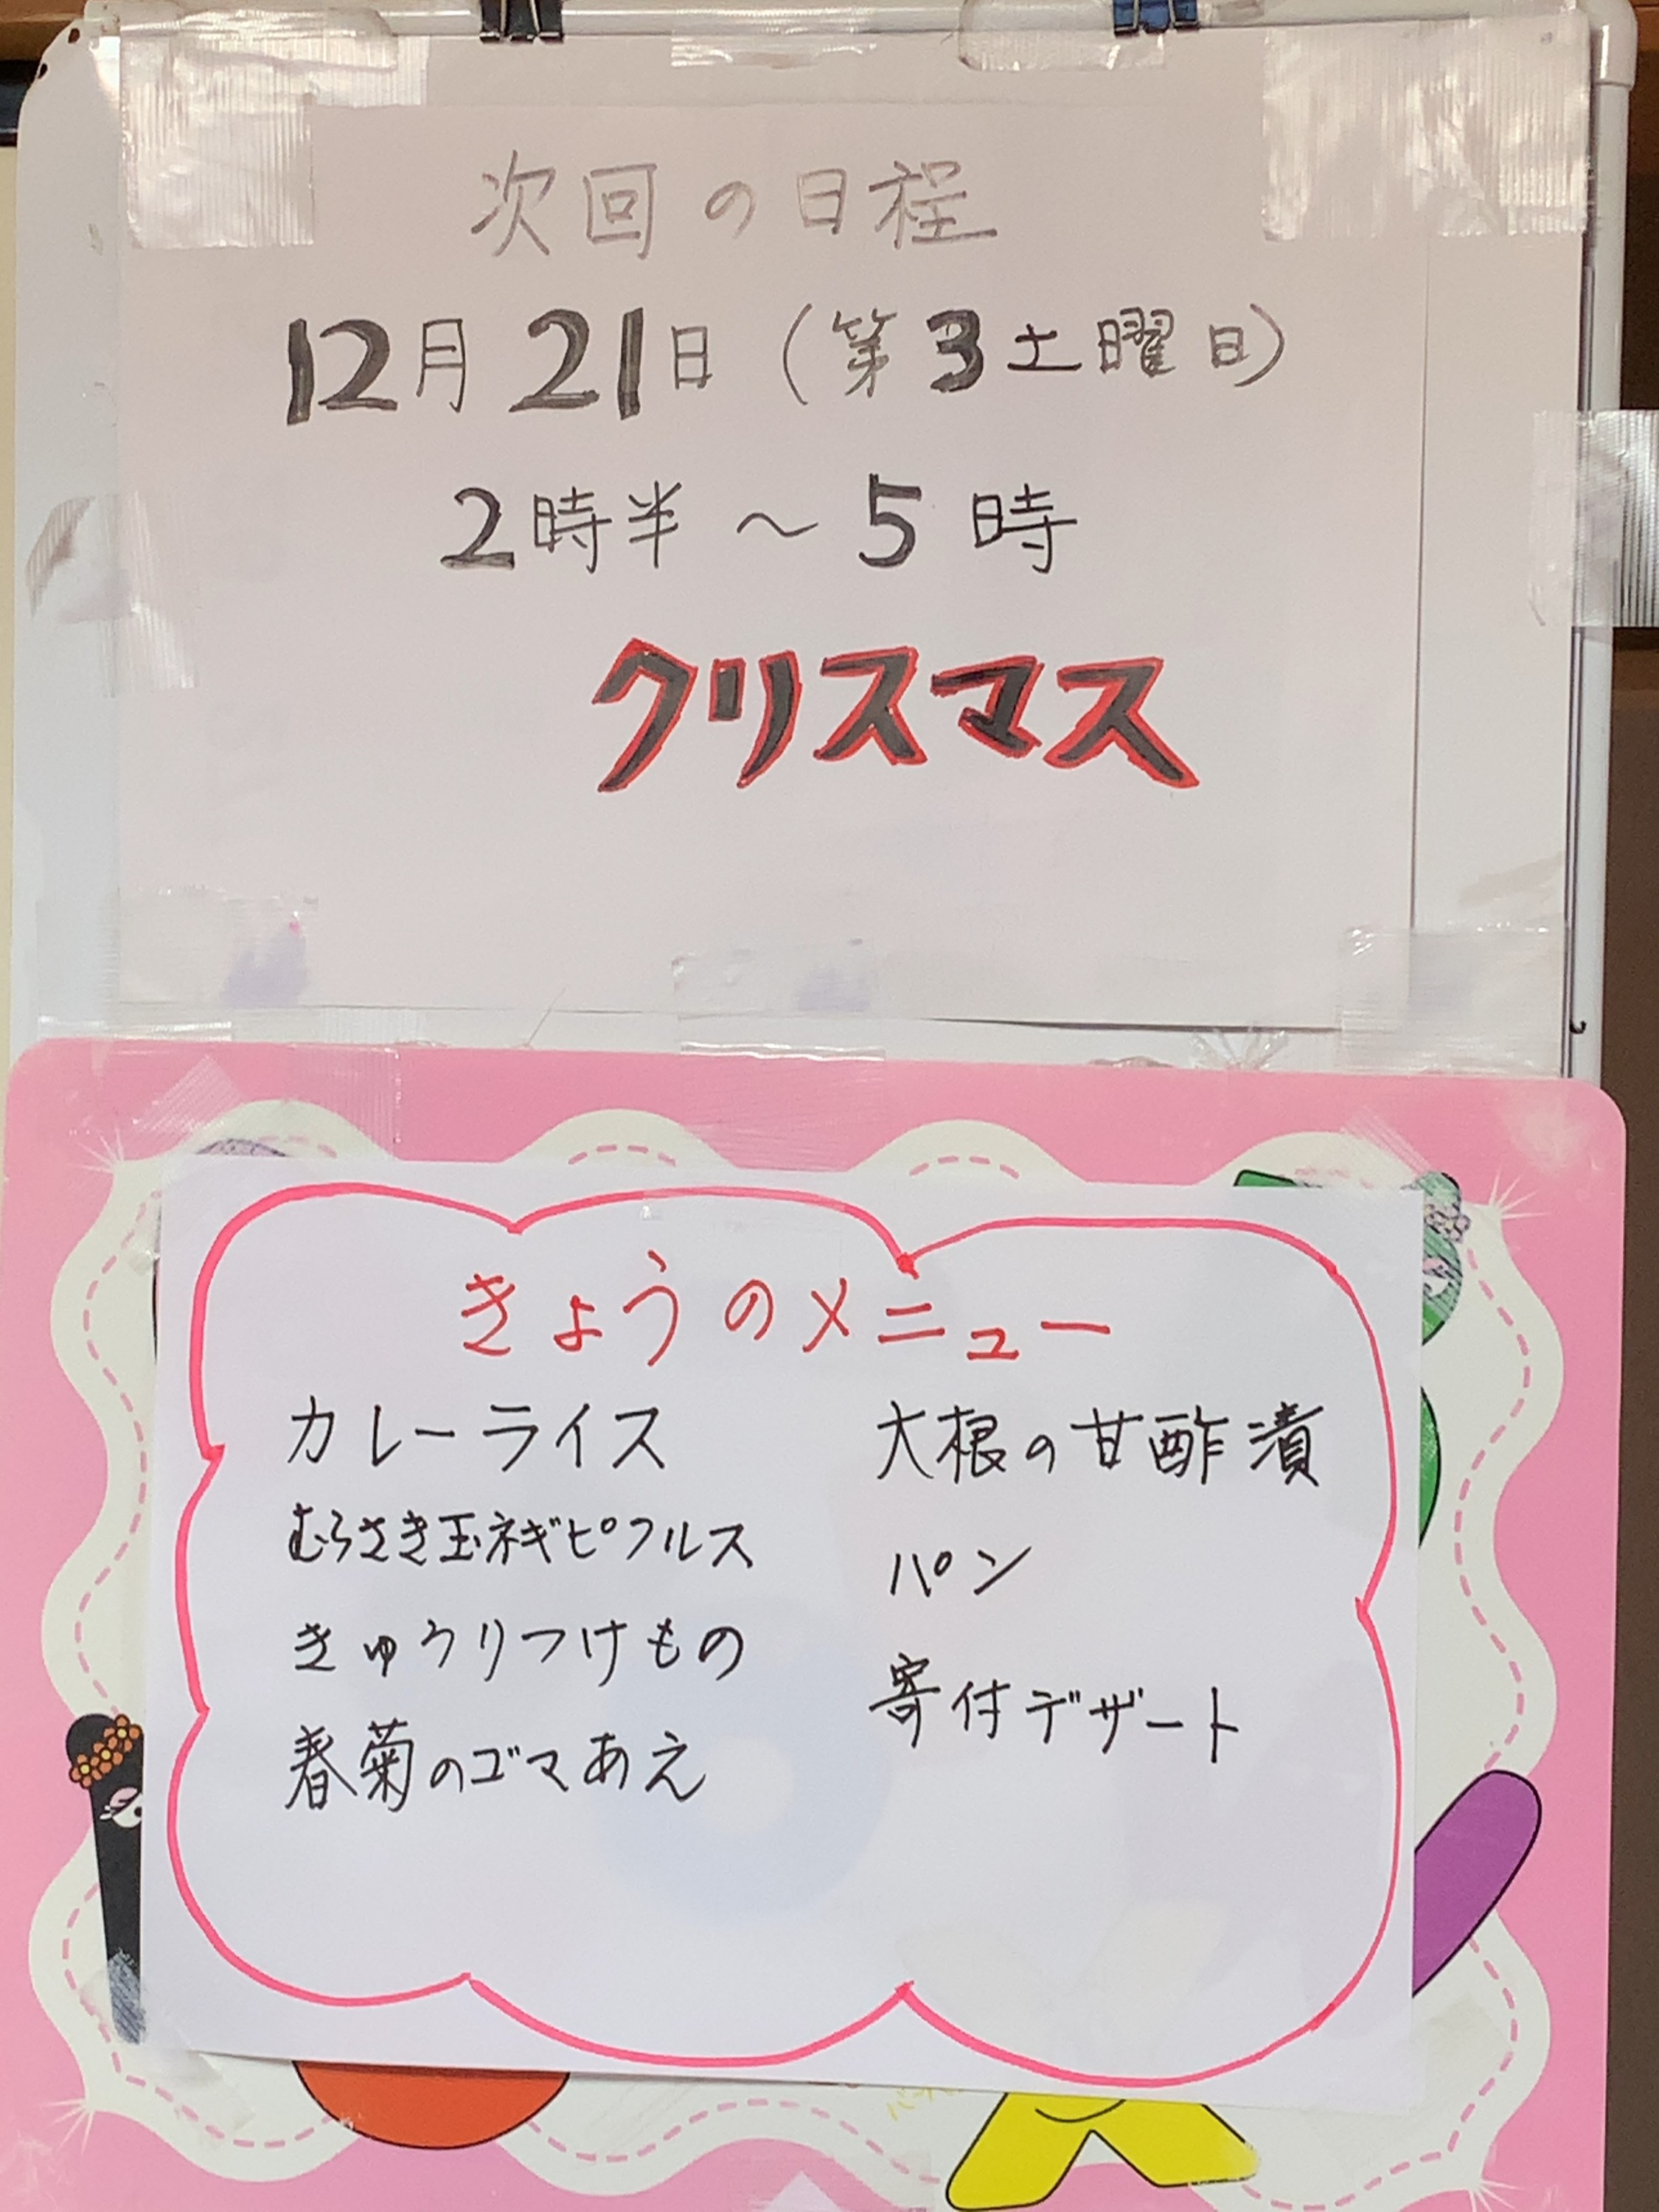 次回の日程
12月21日(第3土曜日)
2時半〜5時
クリスマス
きょうのメニュー
カレーライス
むらさき玉ネギピクルス
きゅうりつけもの
春菊のゴマあえ
大根の甘酢漬
パン
寄付デザート